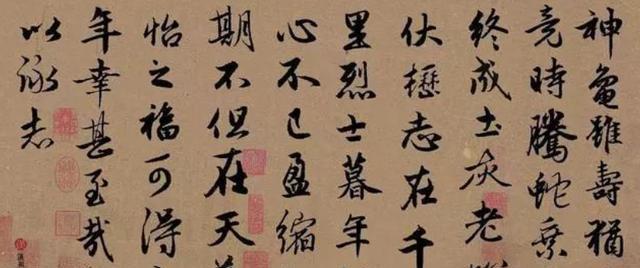 神龜雖壽猶
竟時騰蛇乗
終成土灰老
伏櫪志在千
里烈士暮年
心不已盈縮
期不但在天
怡之福可得
年幸甚至哉
以詠志